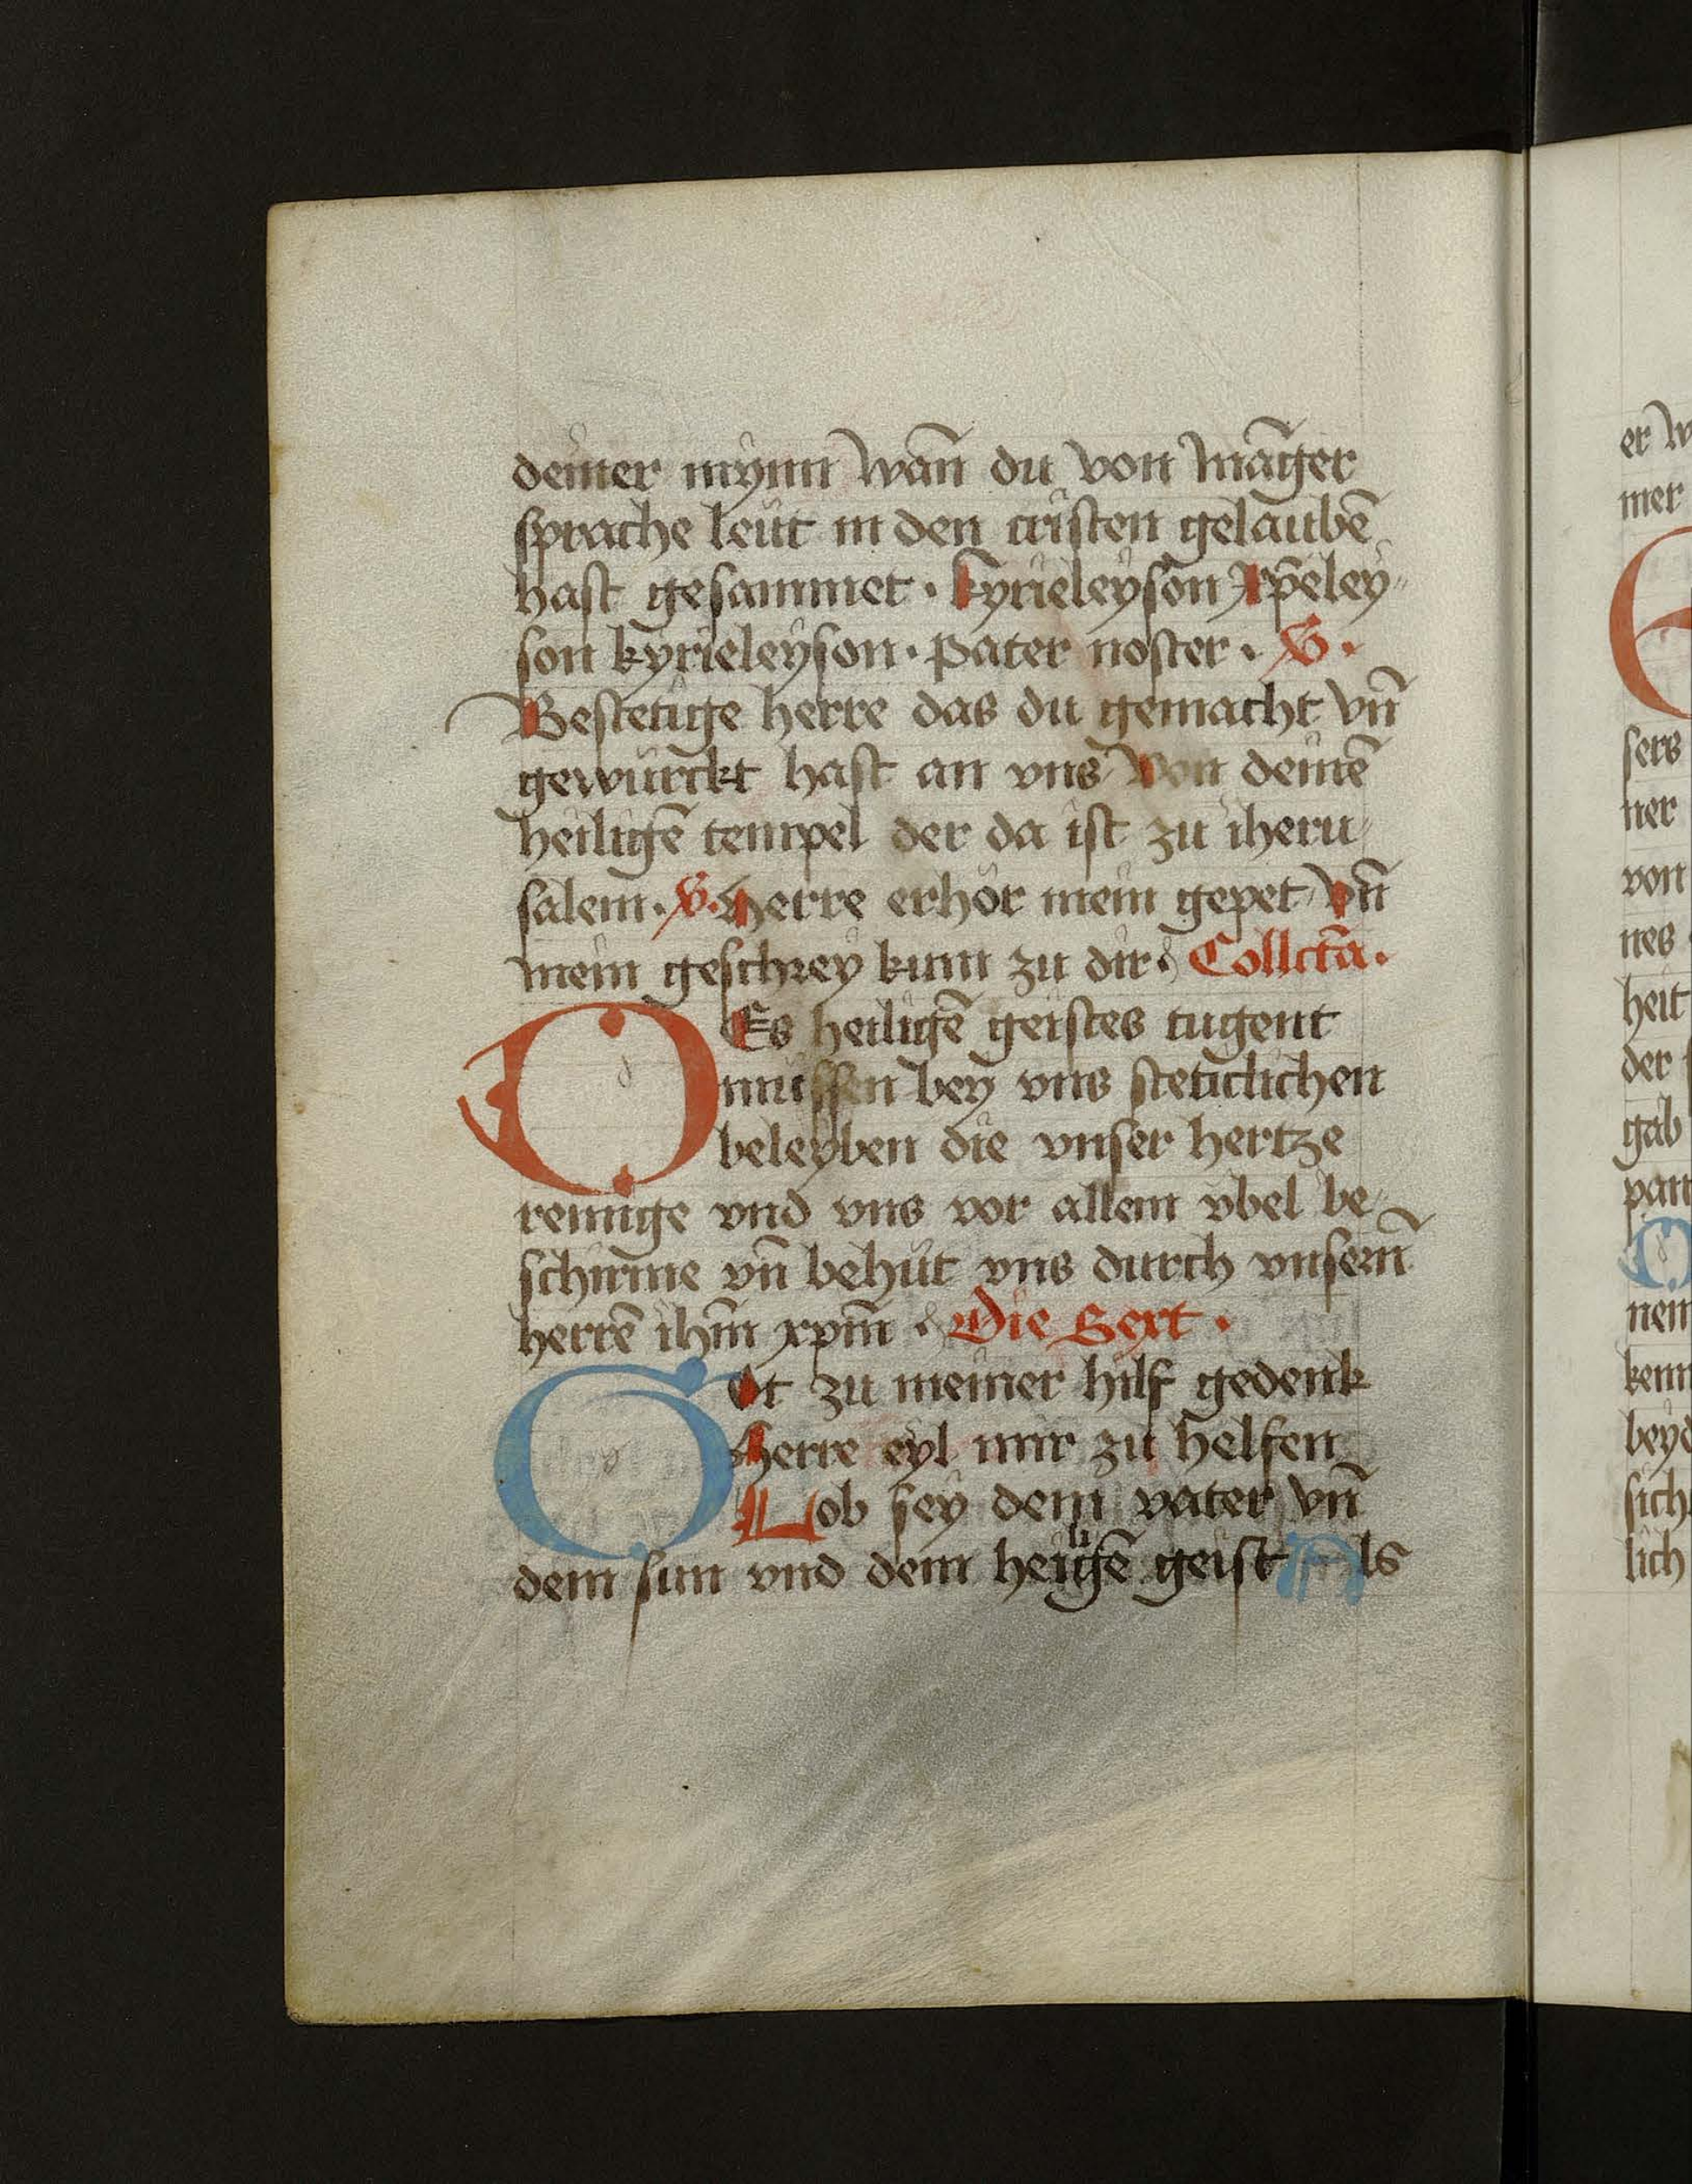 deiner mynn wan̄ du von māger
sprache leut in den cristen gelaubē
hast gesammet · kyrieleyson xp̄eley
son kyrieleyson · pater noster · V ·
Bestetige herre das du gemacht vn̄
gewurckt hast an vns von deinē
heiligē tempel der da ist zu iheru
salem · V · herre erhör mein gepet vn̄
mein geschrey kum zu dir · Collctā ·
DEs heiligē geistes tugent
mussen bey vns steticlichen
beleyben die vnser hertze
reinige vnd vns vor allem vbel be
schirme vn̄ behüt vns durch vnsern̄
herrē ihm̄ xpm̄ · Die Sext ·
GOt zu meiner hilf gedenk
herre eyl mir zu helfen
Lob sey dem vater vn̄
dem sun vnd dem heiligē geist Als
er w
mer
E
sers
ner
von
nes
heit
der
gab
pan
nem
kenn
beyd
sich
lich